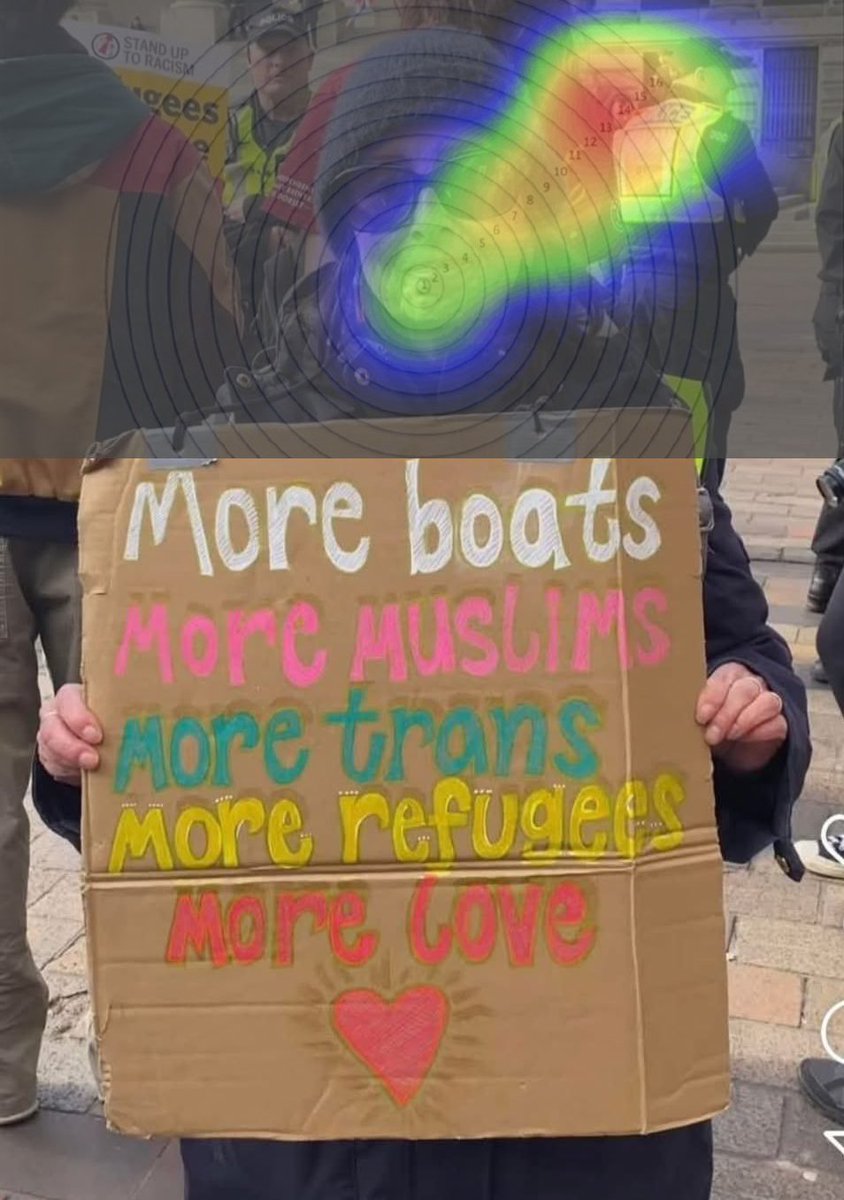 POLICE
STAND UP
TO RACISM
ugees
e
16
15
14
13
12
11
10
9
8
7
6
5
4
3
2
1
More boats
More Muslims
More trans
More refugees
More love